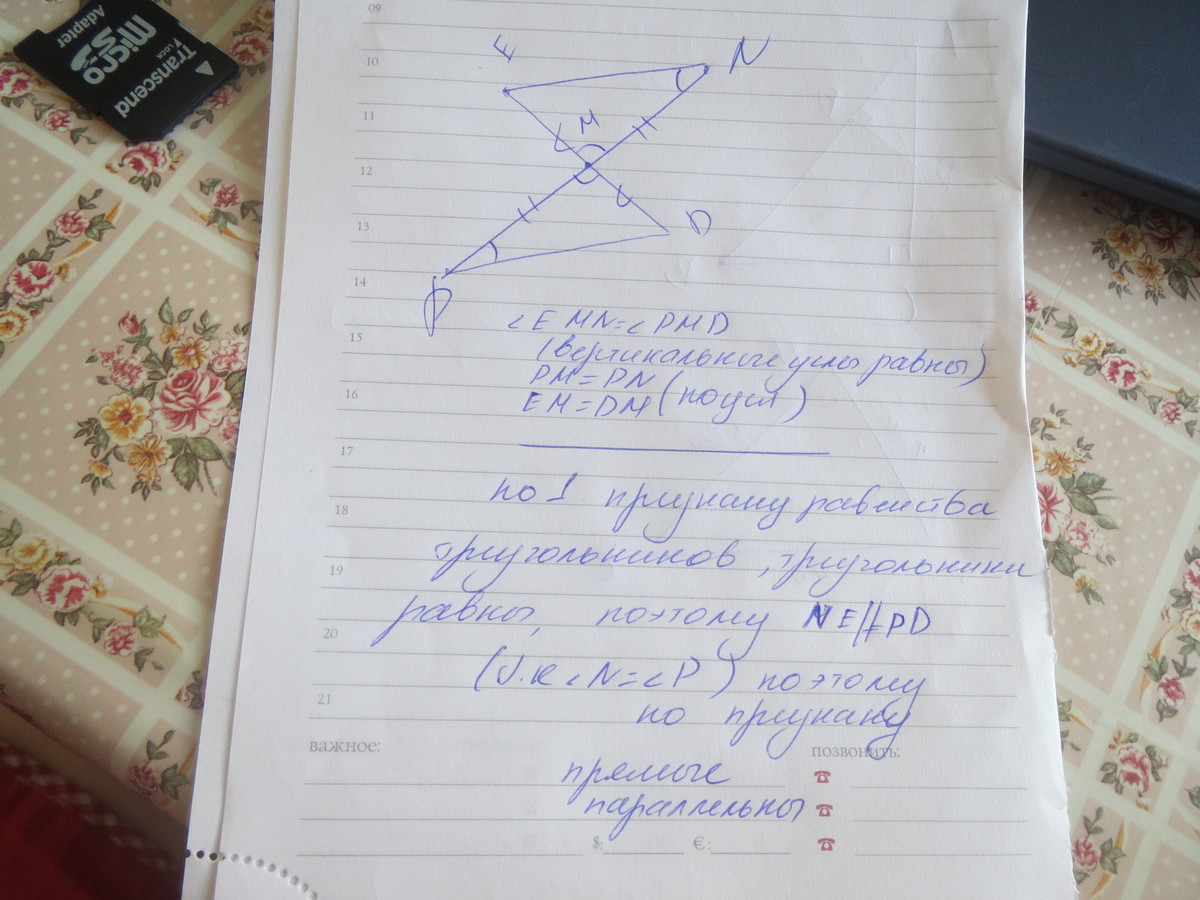 Transcend
LOCK
micro
SD
Adapter
09
10
11
12
13
14
15
16
17
18
19
20
21
E
N
M
D
P
∠EMN=∠PMD
(вертикальные углы равны)
PM=PN
EM=DM (по усл)
по 1 признаку равенства
треугольников, треугольники
равны, поэтому NE∥PD
(т.к ∠N=∠P) поэтому
по признаку
прямые
параллельны
важное:
позвонить:
$:
€: